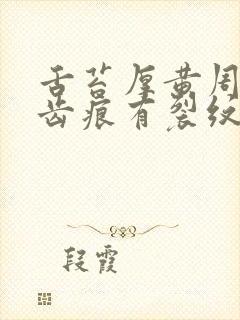 舌苔厚黄周
齿痕有裂纹
段霞